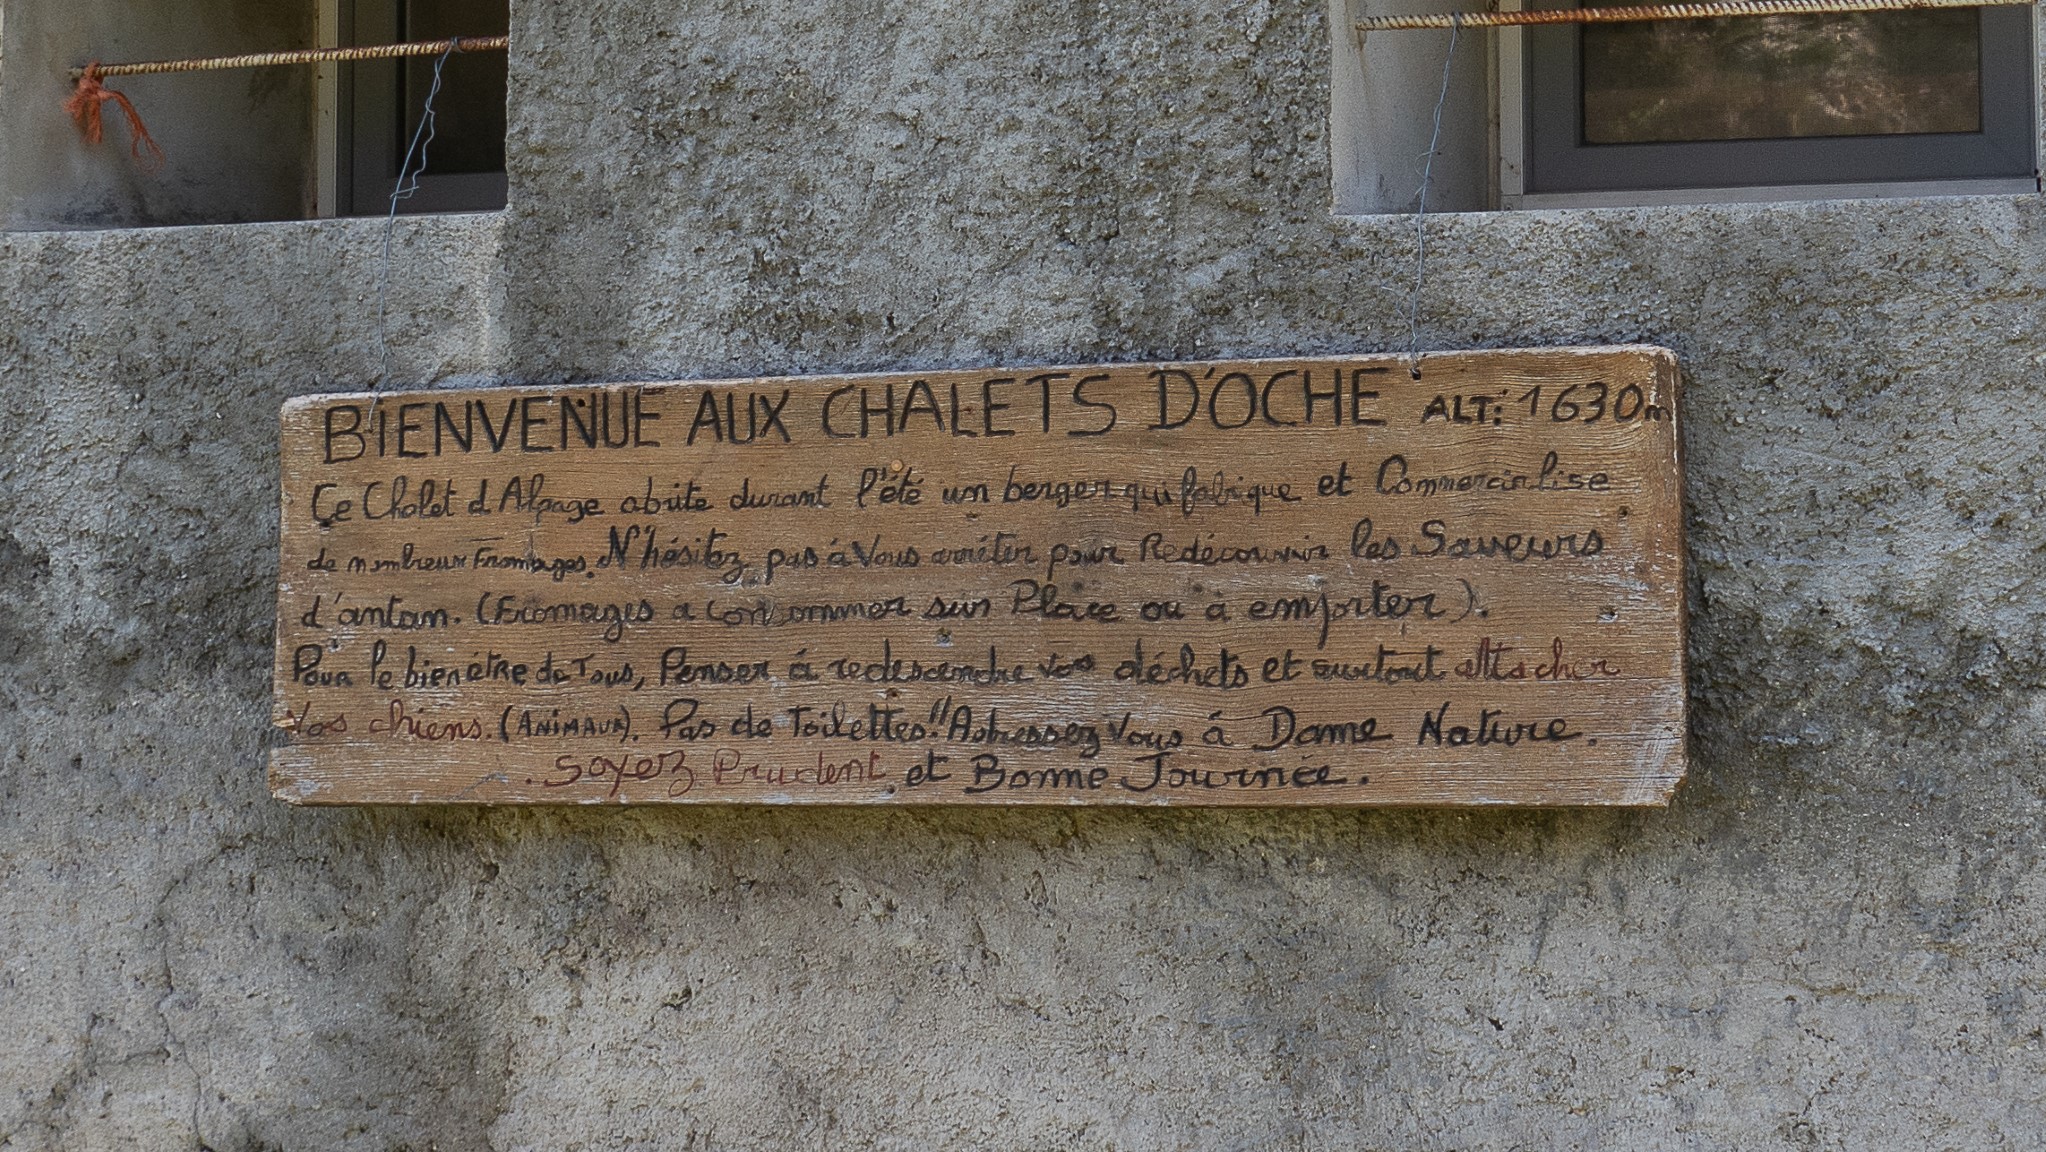 BIENVENUE AUX CHALETS D'OCHE ALT: 1630m
Ce Chalet d Alpage abrite durant l'été un berger qui fabrique et Commercialise
de nombreux Fromages. N'hésitez pas à Vous arrêter pour Redécouvrir les Saveurs
d'antan. (Fromages a consommer sur Place ou à emporter).
Pour le bien être de Tous, Penser à redescendre vos déchets et surtout attacher
Vos chiens. (ANIMAUX). Pas de Toilettes!! Adressez Vous à Dame Nature.
. Soyez Prudent et Bonne Journée.